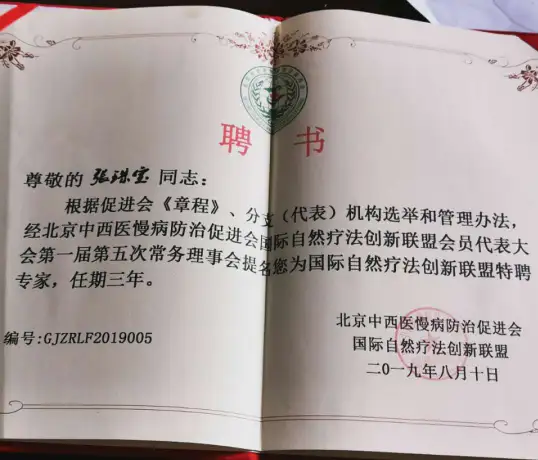 聘 书
尊敬的 张珠宝 同志：
根据促进会《章程》、分支（代表）机构选举和管理办法，
经北京中西医慢病防治促进会国际自然疗法创新联盟会员代表大
会第一届第五次常务理事会提名您为国际自然疗法创新联盟特聘
专家，任期三年。
编号:GJZRLF2019005
北京中西医慢病防治促进会
国际自然疗法创新联盟
二〇一九年八月十日